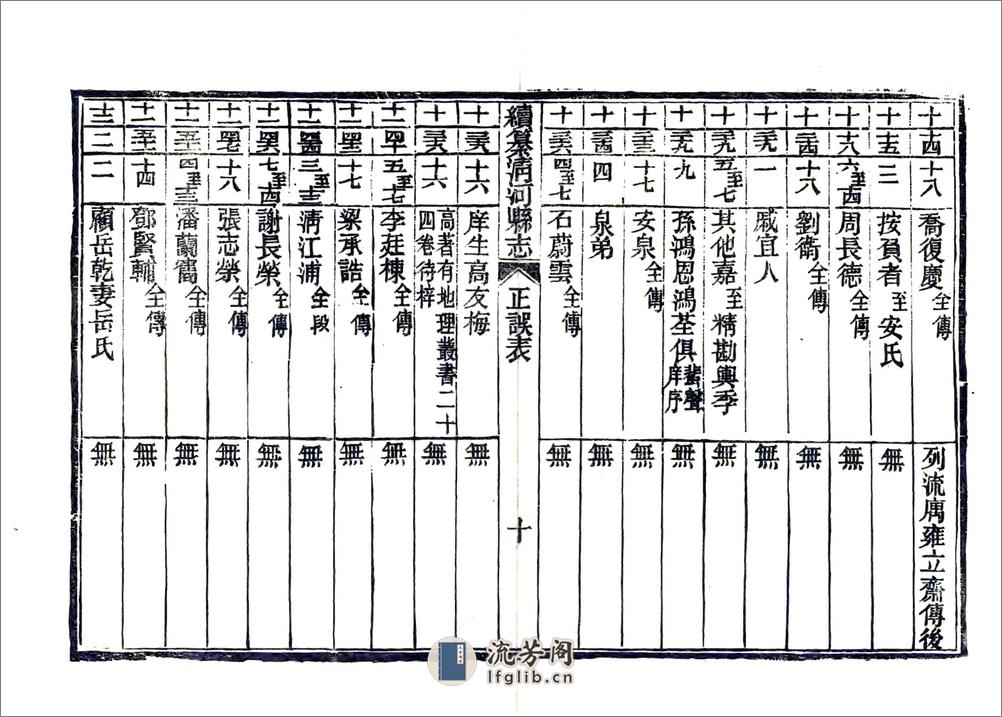 十 十四 十八 喬復慶全傳 列流寓雍立齋傳後
十 十五 三 按貟者至安氏 無
十 六至十四 周長德全傳 無
十 十八 劉衛全傳 無
十 一 戚宜人 無
十 五至七 其他嘉至精勘輿季 無
十 九 孫鴻恩鴻荃俱蜚聲庠序 無
十 十七 安泉全傳 無
十 四 泉弟 無
十 四至七 石蔚雲全傳 無
續纂清河縣志 正誤表 十
十 十六 庠生高友梅 無
十 十六 高著有地理叢書二十四卷待梓 無
十一 四十 五至七 李廷棟全傳 無
十一 十七 梁承誥全傳 無
十一 三至十三 清江浦全段 無
十一 七至十四 謝長榮全傳 無
十一 十八 張志榮全傳 無
十一 四至十三 潘蘭全傳 無
十一 十四 鄧賢輔全傳 無
二 二 顧岳乾妻岳氏 無
流芳阁
lfglib.cn